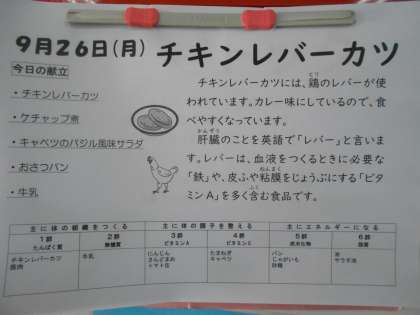 9月26日(月) チキンレバーカツ
今日の献立
・チキンレバーカツ
・ケチャップ煮
・キャベツのバジル風味サラダ
・おさつパン
・牛乳
チキンレバーカツには、鶏のレバーが使
われています。カレー味にしているので、食
べやすくなっています。
肝臓のことを英語で「レバー」と言いま
す。レバーは、血液をつくるときに必要な
「鉄」や、皮ふや粘膜をじょうぶにする「ビタ
ミンA」を多く含む食品です。
主に体の組織をつくる 主に体の調子を整える 主にエネルギーになる
1群 2群 3群 4群 5群 6群
たんぱく質 無機質 ビタミンA ビタミンC 炭水化物 脂質
チキンレバーカツ 牛乳 にんじん たまねぎ パン 油
豚肉 さんどまめ キャベツ じゃがいも サラダ油
トマト缶 砂糖